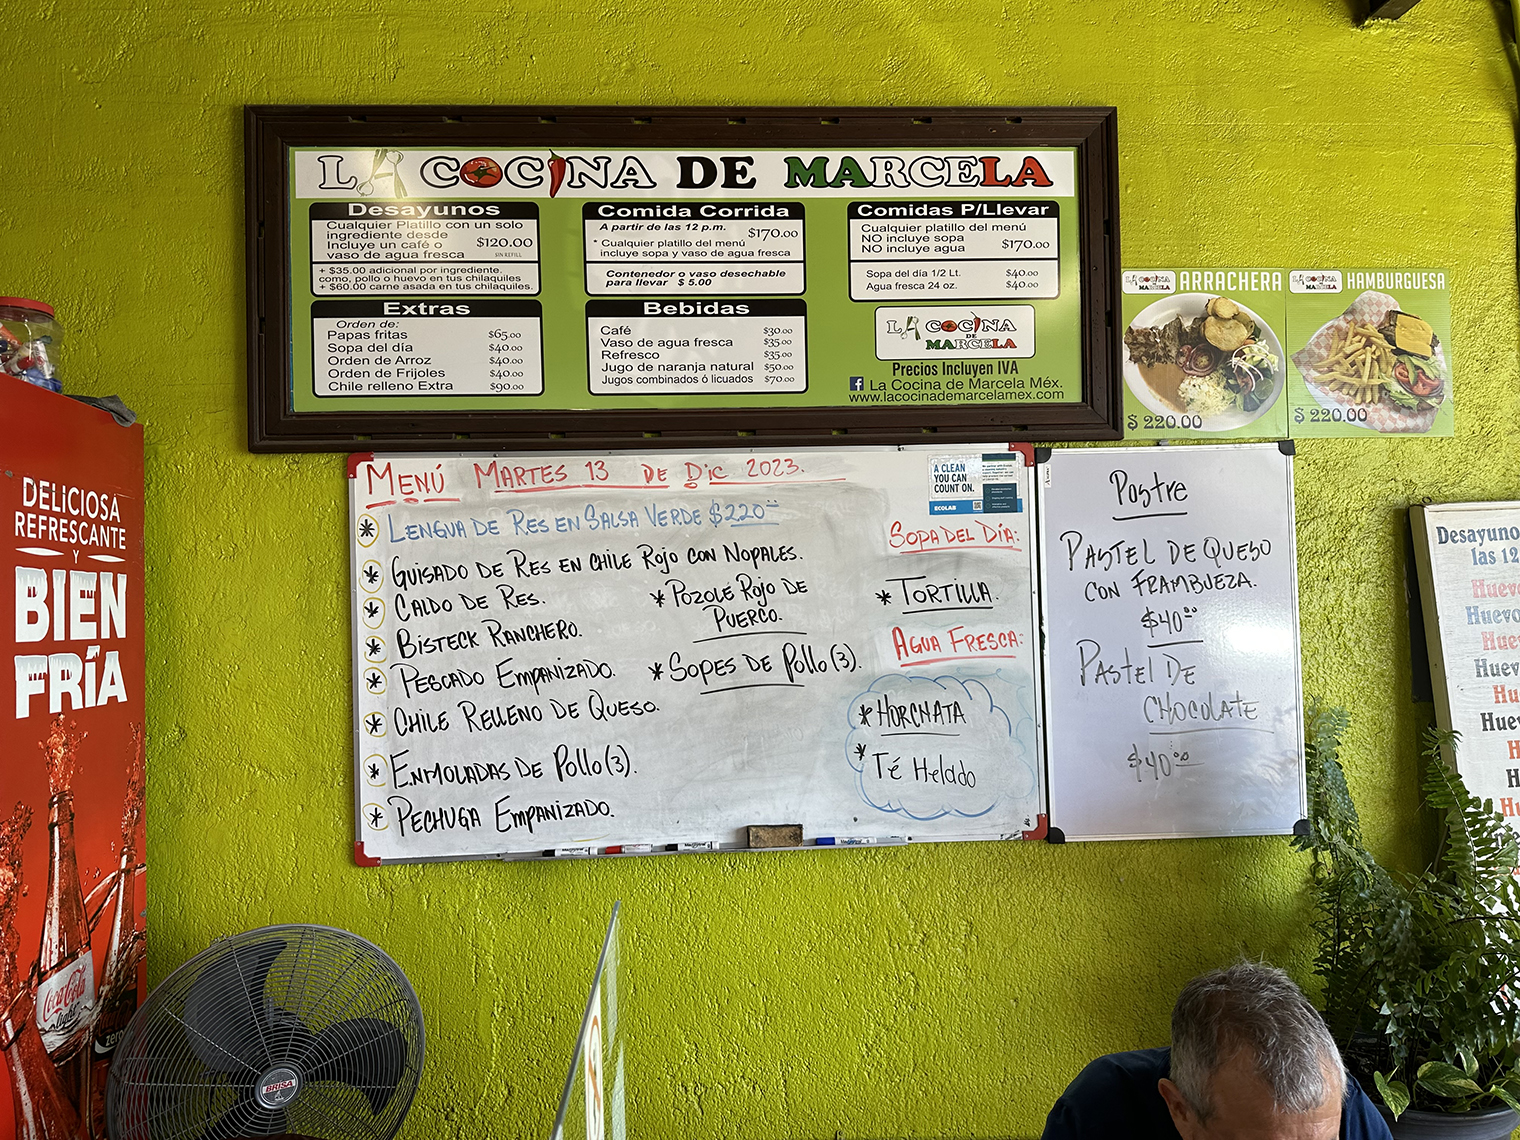 LA COCINA DE MARCELA
Desayunos
Cualquier Platillo con un solo
ingrediente desde
Incluye un café o
vaso de agua fresca
$120.00
SIN REFILL
+ $35.00 adicional por ingrediente.
como, pollo o huevo en tus chilaquiles
+ $60.00 carne asada en tus chilaquiles.
Extras
Orden de:
Papas fritas $65.00
Sopa del día $40.00
Orden de Arroz $40.00
Orden de Frijoles $40.00
Chile relleno Extra $90.00
Comida Corrida
A partir de las 12 p.m.
$170.00
* Cualquier platillo del menú
incluye sopa y vaso de agua fresca
Contenedor o vaso desechable
para llevar $ 5.00
Bebidas
Café $30.00
Vaso de agua fresca $35.00
Refresco $35.00
Jugo de naranja natural $50.00
Jugos combinados ó licuados $70.00
Comidas P/Llevar
Cualquier platillo del menú
NO incluye sopa
NO incluye agua
$170.00
Sopa del día 1/2 Lt. $40.00
Agua fresca 24 oz. $40.00
LA COCINA
DE
MARCELA
Precios Incluyen IVA
La Cocina de Marcela Méx.
www.lacocinademarcelamex.com
LA COCINA
DE
MARCELA
ARRACHERA
$ 220.00
LA COCINA
DE
MARCELA
HAMBURGUESA
$ 220.00
MENÚ MARTES 13 DE DIC 2023.
* LENGUA DE RES EN SALSA VERDE $220.00
* GUISADO DE RES EN CHILE ROJO CON NOPALES.
* CALDO DE RES.
* BISTECK RANCHERO.
* PESCADO EMPANIZADO.
* CHILE RELLENO DE QUESO.
* ENMOLADAS DE POLLO (3).
* PECHUGA EMPANIZADO.
* POZOLE ROJO DE
PUERCO.
* SOPES DE POLLO (3).
A CLEAN
YOU CAN
COUNT ON.
ECOLAB
SOPA DEL DÍA:
* TORTILLA.
AGUA FRESCA:
* HORCHATA
* Té Helado
Postre
PASTEL DE QUESO
CON FRAMBUEZA.
$40.00
PASTEL DE
CHOCOLATE
$40.00
Desayuno
las 12
Huevo
Huevo
Huev
Huev
Hu
Huev
H
H
Hu
DELICIOSA
REFRESCANTE
Y
BIEN
FRÍA
Coca-Cola
light
zero
BRISA